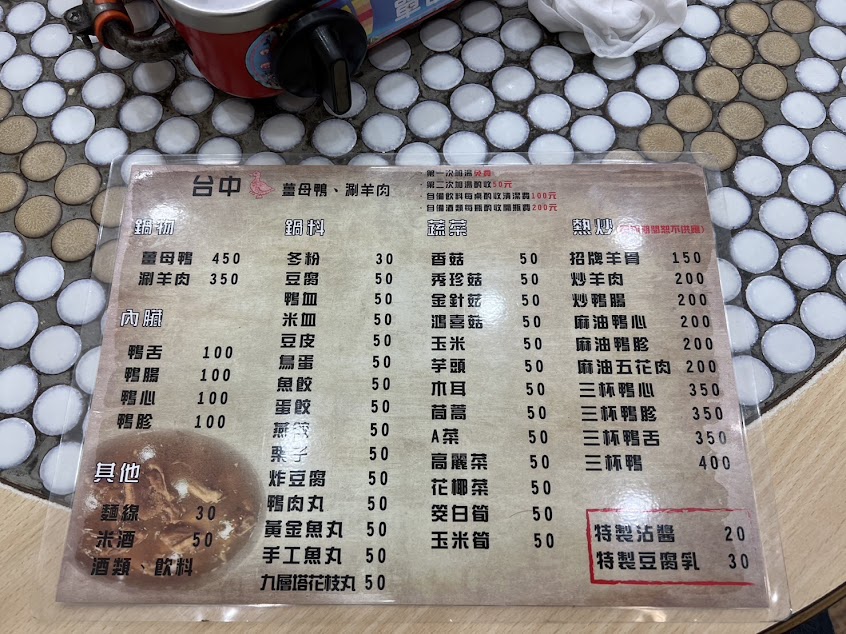 台中 薑母鴨、涮羊肉
第一次加湯免費
第二次加湯酌收50元
自備飲料每桌酌收清潔費100元
自備酒類每瓶酌收開瓶費200元
鍋物
薑母鴨 450
涮羊肉 350
內臟
鴨舌 100
鴨腸 100
鴨心 100
鴨胗 100
其他
麵線 30
米酒 50
酒類、飲料
鍋料
冬粉 30
豆腐 50
鴨血 50
米血 50
豆皮 50
鳥蛋 50
魚餃 50
蛋餃 50
燕餃 50
栗子 50
炸豆腐 50
鴨肉丸 50
黃金魚丸 50
手工魚丸 50
九層塔花枝丸 50
蔬菜
香菇 50
秀珍菇 50
金針菇 50
鴻喜菇 50
玉米 50
芋頭 50
木耳 50
茼蒿 50
A菜 50
高麗菜 50
花椰菜 50
筊白筍 50
玉米筍 50
熱炒
招牌羊骨 150
炒羊肉 200
炒鴨腸 200
麻油鴨心 200
麻油鴨胗 200
麻油五花肉 200
三杯鴨心 350
三杯鴨胗 350
三杯鴨舌 350
三杯鴨 400
特製沾醬 20
特製豆腐乳 30